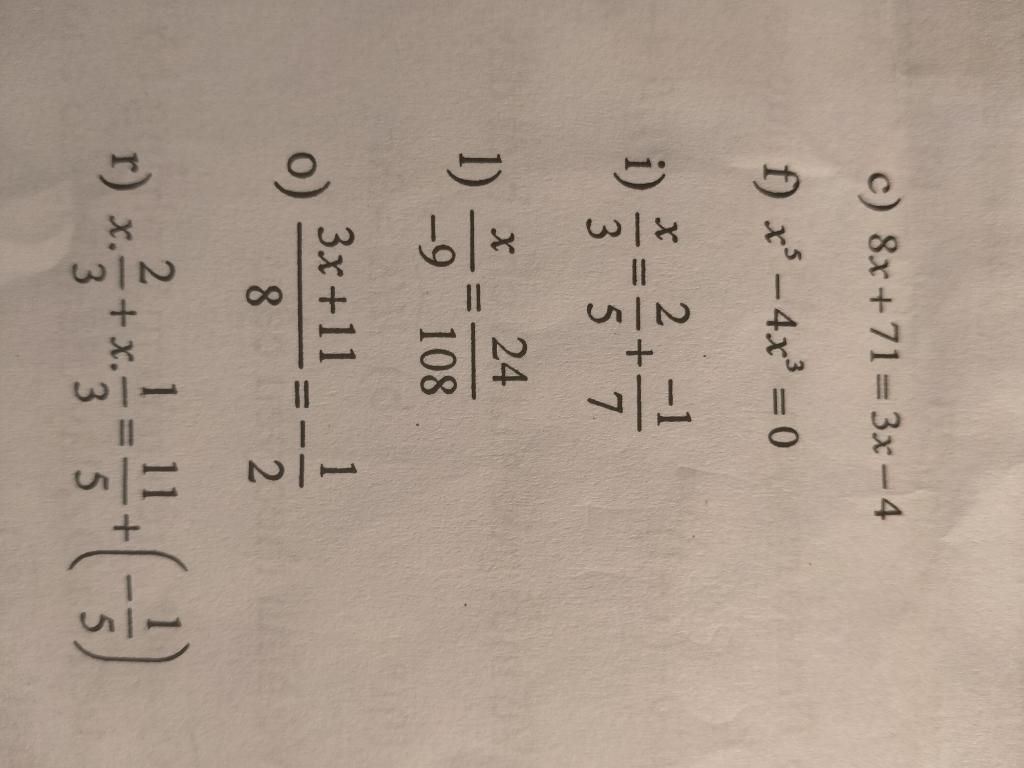 c) 8x + 71 = 3x − 4
f) x⁵ − 4x³ = 0
i) x/3 = 2/5 + −1/7
l) x/−9 = 24/108
o) 3x + 11/8 = −1/2
r) x.2/3 + x.1/3 = 11/5 + (−1/5)